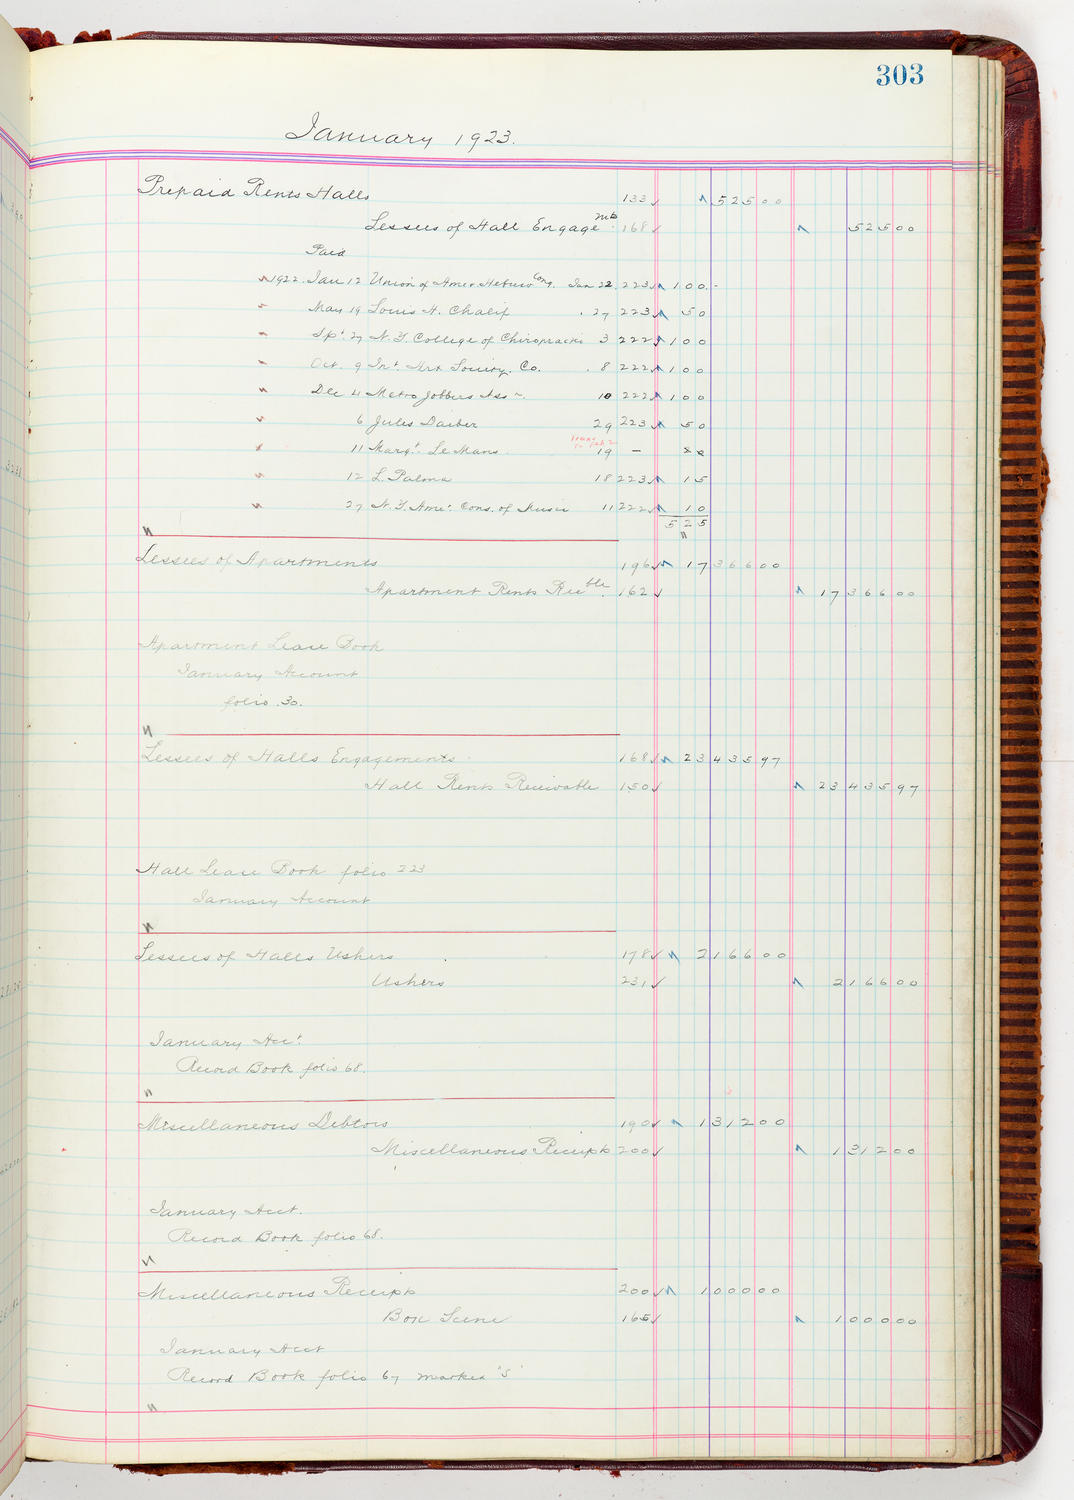 303
January 1923.
Prepaid Rents Halls 133 ✓ 525 00
Lessees of Hall Engagemts 168 ✓ 525 00
Paid
1922 Jan 12 Union of Amer. Hebrew Cong. Jan 22 223 ✓ 100.-
May 19 Louis H. Chalif . 27 223 ✓ 50
Spt. 27 N. Y. College of Chiropractic 3 222 ✓ 100
Oct. 9 Int. Mrx Co. . 8 222 ✓ 100
Dec 4 Metro Jobbers Assn 10 222 ✓ 100
6 Jules Daiber 29 223 ✓ 50
11 Margt. Le Mans 19 –
12 L. Palma 18 223 ✓ 15
27 N. Y. Amer. Cons. of Music 11 222 ✓ 10
525
Lessees of Apartments 196 ✓ 17366 00
Apartment Rents Recble. 162 ✓ 17366 00
Apartment Lease Book
January Account
folio .30.
Lessees of Halls Engagements 168 ✓ 23435 97
Hall Rents Receivable 150 ✓ 23435 97
Hall Lease Book folio 223
January Account
Lessees of Halls Ushers 178 ✓ 2166 00
Ushers 231 ✓ 2166 00
January Acct.
Record Book folio 68.
Miscellaneous Debtors 190 ✓ 1312 00
Miscellaneous Receipts 200 ✓ 1312 00
January Acct.
Record Book folio 68.
Miscellaneous Receipts 200 ✓ 1000 00
Box Scene 165 ✓ 1000 00
January Acct
Record Book folio 67 marked "S"